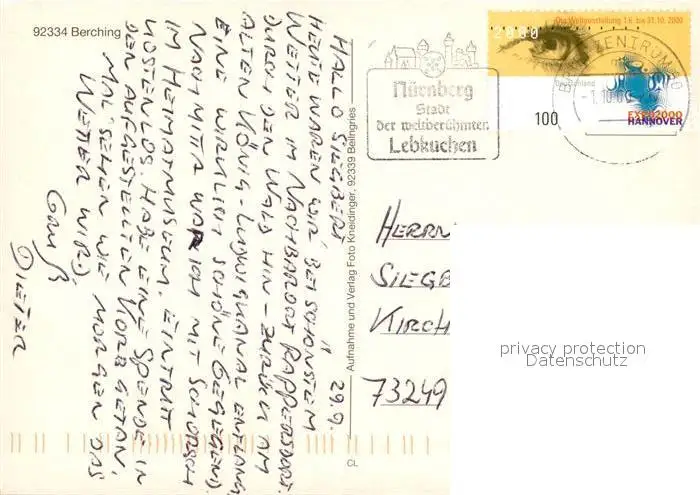 92334 Berching
HALLO SIEGBERT 29.9.
HEUTE WAREN WIR BEI SCHÖNSTEM
WETTER IM NACHBARDORF RAPPERSDORF.
DURCH DEN WALD HIN - ZURÜCK AM
ALTEN KÖNIG-LUDWIGKANAL ENTLANG
EINE WIRKLICH SCHÖNE GEGEGEND.
NACHMITTA WAR ICH MIT SCHORSCH
IM HEIMATMUSEUM. EINTRITT
KOSTENLOS. HABE EINE SPENDE IN
DEN AUFGESTELLTEN KORB GETAN.
MAL SEHEN WIE MORGEN DAS
WETTER WIRD.
Gruß
DIETER
Aufnahme und Verlag Foto Kneidinger, 92339 Beilngries
CL
Nürnberg
Stadt
der weltberühmten
Lebkuchen
Die Weltausstellung 1.6. bis 31.10. 2000
2000
Deutschland
100
EXPO2000
HANNOVER
BRIEFZENTRUM 90
-1.10.00
HERRN
SIEGB
KIRCH
73249
privacy protection
Datenschutz